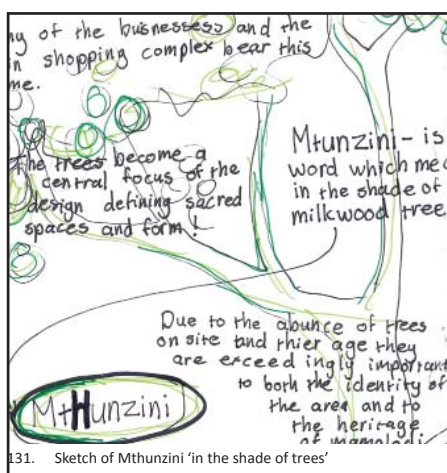 ny of the businessess and the
in shopping complex bear this
me.
The trees become a
central focus of the
design defining sacred
spaces and form!
Mtunzini - is
word which mea
in the shade of
milkwood tree
Due to the abunce of trees
on site and thier age they
are exceedingly important
to both the identity of
the area and to
the heritage
of mamelodi
MtHunzini
131. Sketch of Mthunzini ‘in the shade of trees’